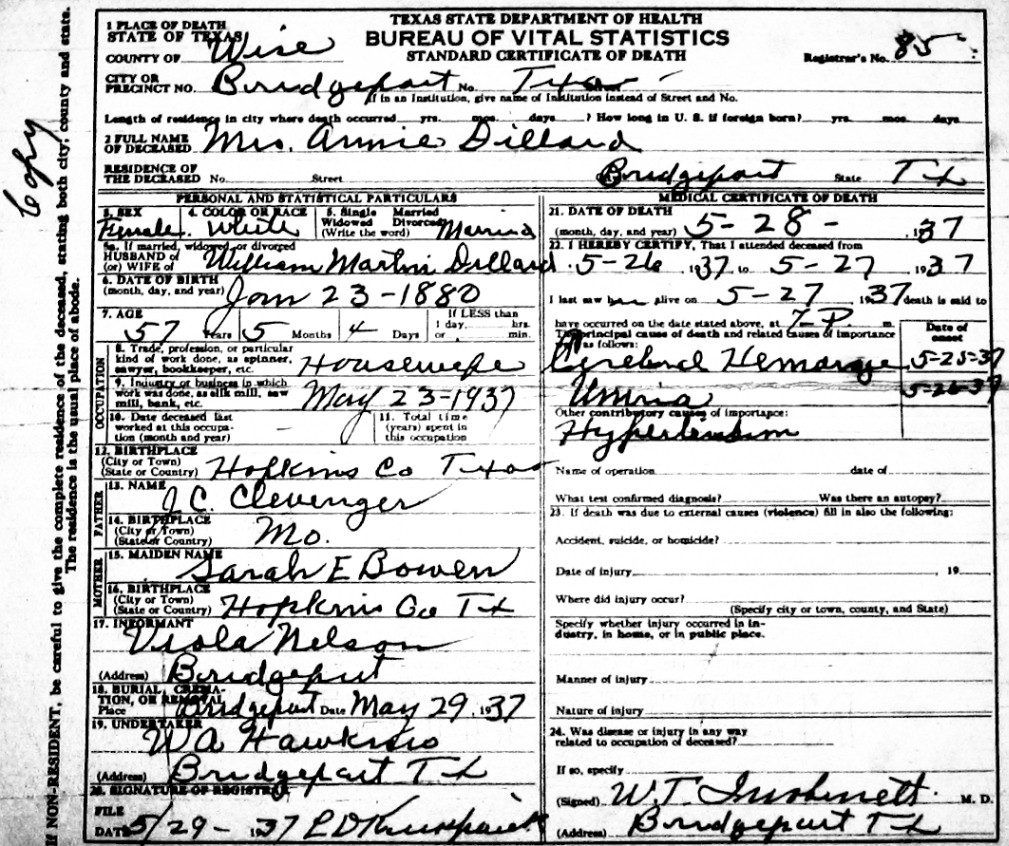 Copy
If NON-RESIDENT, be careful to give the complete residence of the deceased, stating both city; county and state.
The residence is the usual place of abode.
TEXAS STATE DEPARTMENT OF HEALTH
BUREAU OF VITAL STATISTICS
STANDARD CERTIFICATE OF DEATH
1 PLACE OF DEATH
STATE OF TEXAS
COUNTY OF Wise
Registrar's No. 85
CITY OR
PRECINCT NO. Bridgeport No. Texas
If in an Institution, give name of Institution instead of Street and No.
Length of residence in city where death occurred yrs. mos. days ? How long in U. S. if foreign born? yrs. mos. days
2 FULL NAME
OF DECEASED Mrs. Annie Dillard
RESIDENCE OF
THE DECEASED No. Street Bridgeport State Tx
PERSONAL AND STATISTICAL PARTICULARS
3. SEX Female
4. COLOR OR RACE White
5. Single Married
Widowed Divorced
(Write the word) Married
5a. If married, widowed or divorced
HUSBAND of
(or) WIFE of William Martin Dillard
6. DATE OF BIRTH
(month, day, and year) Jan 23-1880
7. AGE
57 Years 5 Months 4 Days
If LESS than
1 day, hrs.
or min.
OCCUPATION
8. Trade, profession, or particular
kind of work done, as spinner,
sawyer, bookkeeper, etc. Housewife
9. Industry or business in which
work was done, as silk mill, saw
mill, bank, etc. May 23-1937
10. Date deceased last
worked at this occupa-
tion (month and year)
11. Total time
(years) spent in
this occupation
12. BIRTHPLACE
(City or Town)
(State or Country) Hopkins Co Texas
FATHER
13. NAME J.C. Clevenger
14. BIRTHPLACE
(City or Town)
(State or Country) Mo.
MOTHER
15. MAIDEN NAME Sarah E Bowen
16. BIRTHPLACE
(City or Town)
(State or Country) Hopkins Co Tx
17. INFORMANT Viola Nelson
(Address) Bridgeport
18. BURIAL, CREMA-
TION, OR REMOVAL
Place Bridgeport Date May 29, 1937
19. UNDERTAKER W A Hawkins
(Address) Bridgeport Tx
20. SIGNATURE OF REGISTRAR
FILE
DATE 5/29- 1937
MEDICAL CERTIFICATE OF DEATH
21. DATE OF DEATH
(month, day, and year) 5-28-, 1937
22. I HEREBY CERTIFY, That I attended deceased from
5-26, 1937 to 5-27 1937
I last saw her alive on 5-27 1937 death is said to
have occurred on the date stated above, at 7-P m.
The principal cause of death and related causes of importance
as follows:
Date of
onset
Cerebral Hemorage 5-25-37
5-26-37
Other contributory causes of importance:
Hypertension
Name of operation date of
What test confirmed diagnosis? Was there an autopsy?
23. If death was due to external causes (violence) fill in also the following:
Accident, suicide, or homicide?
Date of injury , 19
Where did injury occur?
(Specify city or town, county, and State)
Specify whether injury occurred in in-
dustry, in home, or in public place.
Manner of injury
Nature of injury
24. Was disease or injury in any way
related to occupation of deceased?
If so, specify
(Signed) W.T. M. D.
(Address) Bridgeport Tx